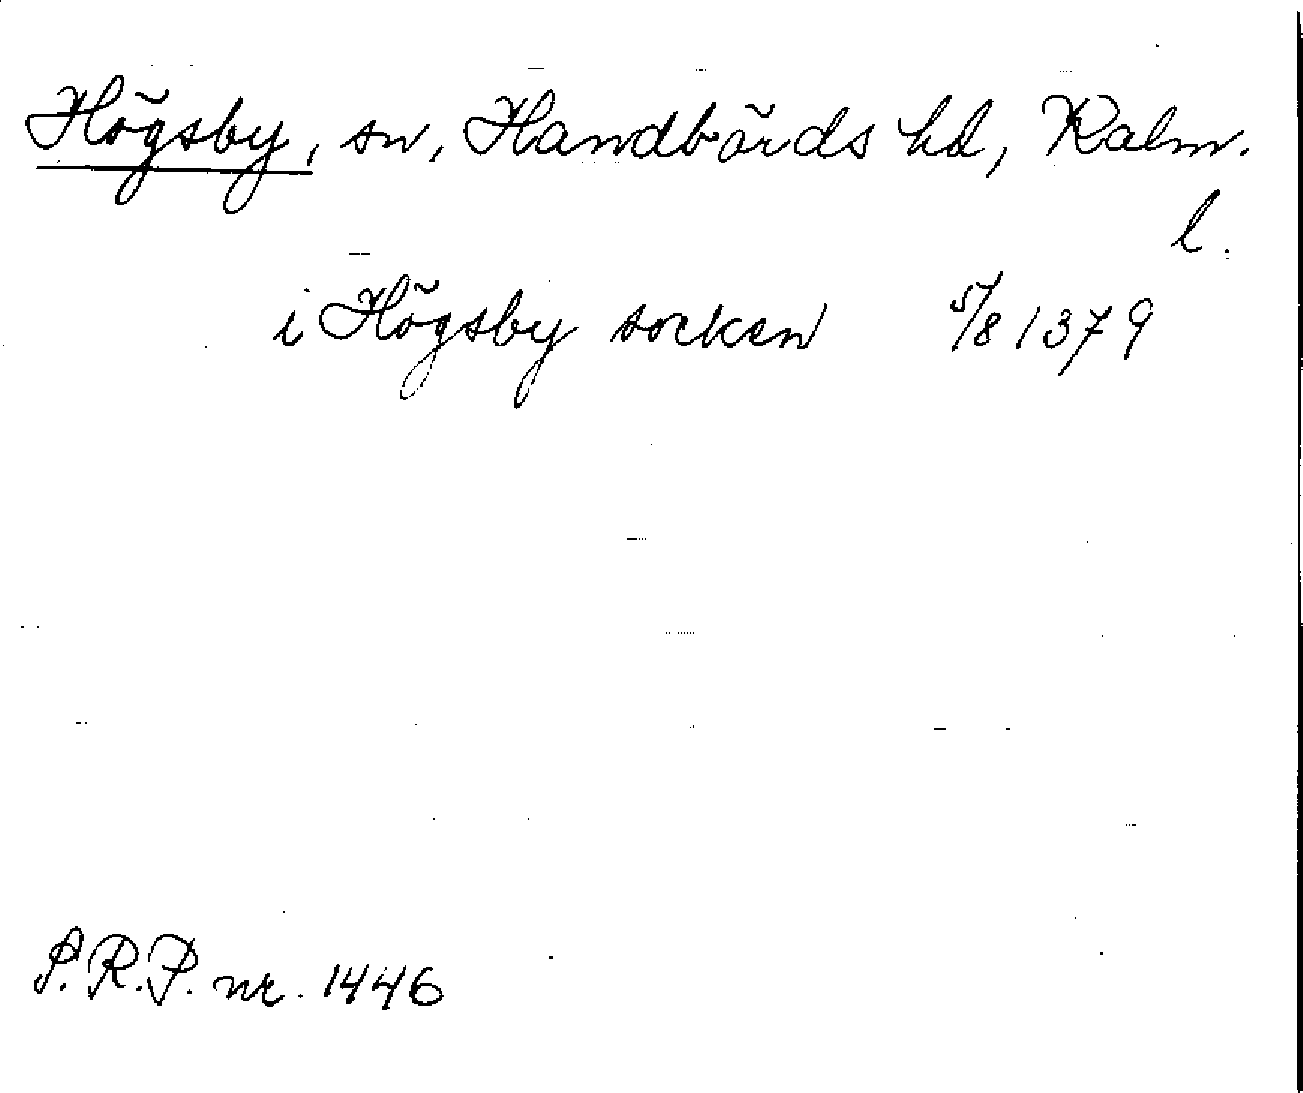 Högsby, sn, Handbörds hd, Kalm.
l.
i Högsby socken 5/8 1379
S.R.P. nr. 1446